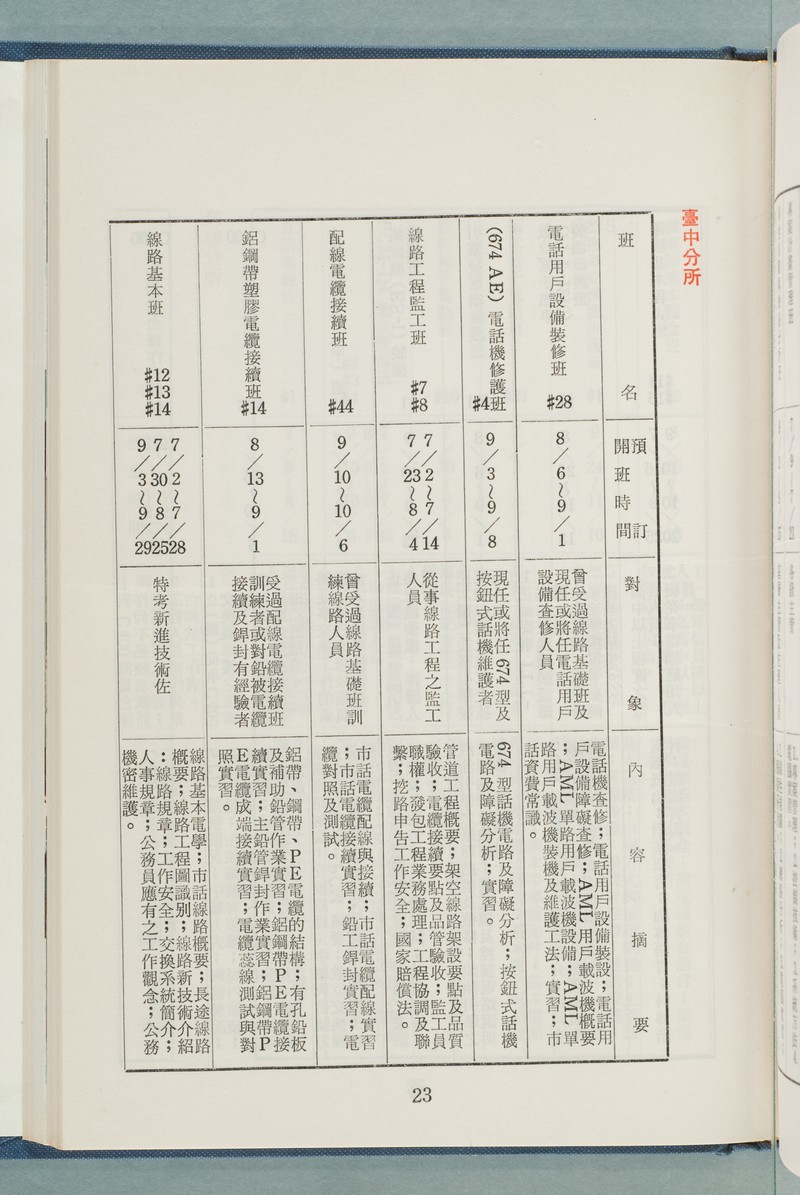 臺中分所
班名
預訂
開班時間
對象
內容摘要
電話用戶設備裝修班 #28
8/6~9/1
曾受過線路基礎班及
現任或將任電話用戶
設備查修人員
電話機查修;電話用戶設備裝設;電話用
戶設備障礙查修;AML用戶載波機概要
;AML單路用戶載波機設備;AML單
路用戶載波機裝機及維護工法;實習;市
話資費常識。
(674 AE)電話機修護班 #4
9/3~9/8
現任或將任674型及
按鈕式話機維護者
674型話機電路及障礙分析;按鈕式話機
電路及障礙分析;實習。
線路工程監工班 #7
#8
7/2~7/14
7/23~8/4
從事線路工程之監工
人員
管道工程概要;架空線路架設要點及品質
驗收;電纜接續要點及品管驗收;監工員
職權;發包工程業務處理;工程協調及聯
繫;挖路申告工作安全;國家賠償法。
配線電纜接續班 #44
9/10~10/6
曾受過線路基礎班訓
練線路人員
市話電纜配線與接續;市話電纜配線實習
;市話電纜接續實習;鉛工銲封實習;電
纜對照及測試。
鋁鋼帶塑膠電纜接續班 #14
8/13~9/1
受過配線電纜接續班
訓練者或對鉛被電纜
接續及銲封有經驗者
鋁帶、鋼帶、PE電纜的結構;有孔鉛板
及補助鉛管作業實習;鋁鋼帶PE電纜接
續實習;主鉛管銲封作業實習;鋁鋼帶P
E電纜成端接續實習;電纜蕊線測試與對
照實習。
線路基本班 #12
#13
#14
7/2~7/28
7/30~8/25
9/3~9/29
特考新進技術佐
線路基本電學;市話線路概要;長途線路
概要;線路工程圖識別;線路新技術介紹
:線路規章;工作安全;交換系統簡介;
人事規章;公務員應有之工作觀念;公務
機密維護。
23